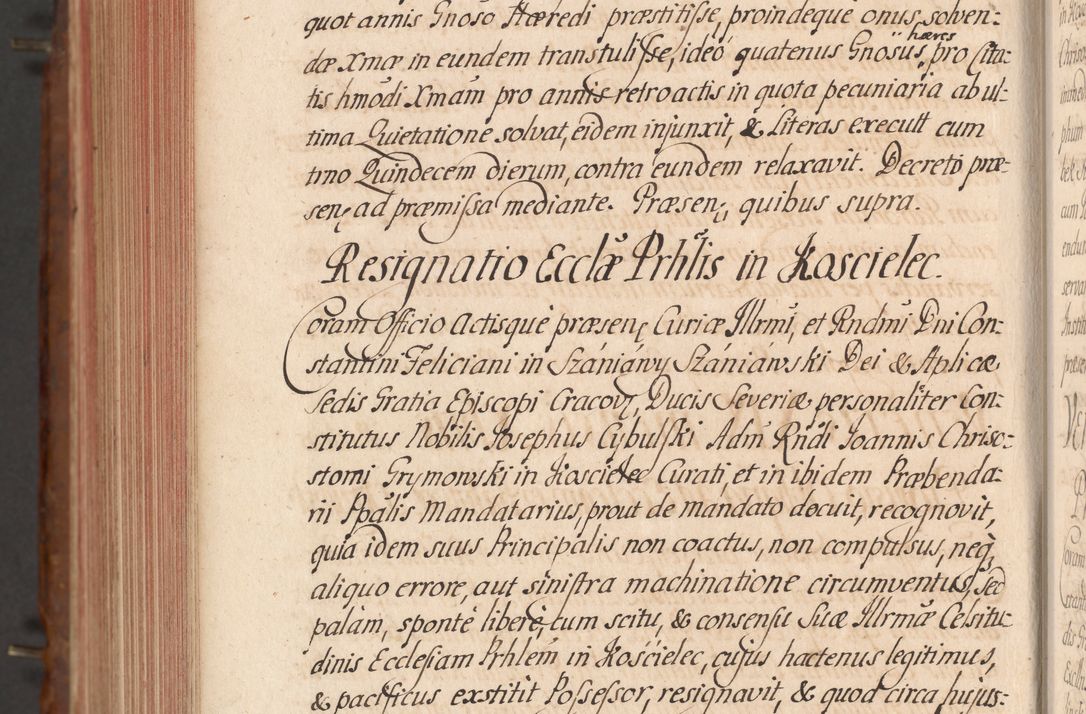 quot annis Gnoso Hæredi præstitisse, proindeque onus solven:
dæ Xmæ in eundem transtulisse, ideo quatenus Gnosus hæres pro Cita:
tis hmodi Xmam pro annis retroactis in quota pecuniaria ab ul:
tima Quietatione solvat, eidem injunxit, & Literas execult cum
tmo Quindecem dierum, contra eundem relaxavit. Decreto præ:
sen; ad præmissa mediante. Præsen;, quibus supra.
Resignatio Ecclæ Prhlis in Koscielec.
Coram Officio Actisque præsen; Curiæ Illrmi, et Rndmi Dni Con:
stantini Feliciani in Szániáwy Szániáwski Dei & Aplicæ
Sedis Gratia Episcopi Cracov;, Ducis Severiæ personaliter Con:
stitutus Nobilis Josephus Cybulski Adm Rndi Joannis Chriso:
stomi Grymowski in Koscielec Curati, et in ibidem Præbenda:
rii Ppalis Mandatarius, prout de mandato docuit, recognovit,
quia idem suus Principalis non coactus, non compulsus, neq;
aliquo errore, aut sinistra machinatione circumventus, sed
palam, sponte libere, tum scitu, & consensu Suæ Illrmæ Celsitu:
dinis Ecclesiam Prhlem in Kościelec, cujus hactenus legitimus,
& pacificus exstitit Possessor, resignavit, & quod circa hujus: